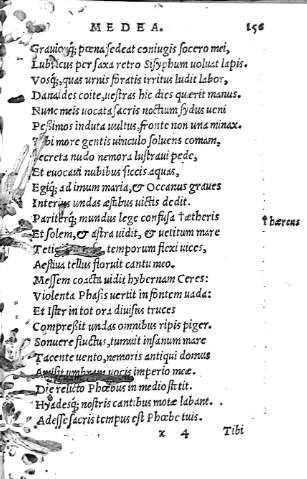 MEDEA. 156
Grauiorq; pœna sedeat coniugis socero mei,
Lubricus per saxa retro Sisyphum uoluat lapis.
Vosq;, quas urnis foratis irritus ludit labor,
Danaides coite, uestras hic dies quærit manus.
Nunc meis uocata sacris noctium sydus ueni
Peßimos induta uultus, fronte non una minax.
Tibi more gentis uinculo soluens comam,
Secreta nudo nemora lustraui pede,
Et euocaui nubibus siccis aquas,
Egiq; ad imum maria, & Oceanus graues
Interius undas æstibus uictis dedit.
Pariterq; mundus lege confusa †ætheris
† hærens
Et solem, & astra uidit, & uetitum mare
Tetigistis temporum flexi uices,
Aestiua tellus floruit cantu meo.
Messem coacta uidit hybernam Ceres:
Violenta Phasis uertit in fontem uada:
Et Ister in tot ora diuisus truces
Compreßit undas omnibus ripis piger.
Sonuere fluctus, tumuit insanum mare
Tacente uento, nemoris antiqui domus
Amisit umbram uocis imperio meæ.
Die relicto Phœbus in medio stetit.
Hyadesq; nostris cantibus motæ labant.
Adesse sacris tempus est Phœbe tuis.
x 4 Tibi